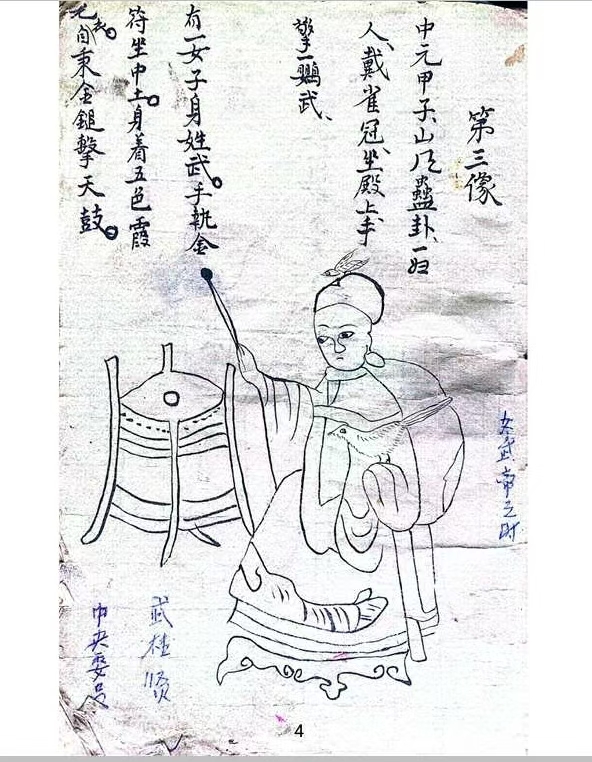 第三像
中元甲子、山风蠱卦、一妇
人、戴雀冠、坐殿上、手
擎一鹦武、
有一女子身姓武。手執金
符坐中土。身着五色霞
自秉金鎚擊天鼓。
武帝之时
武桂贤
中央委员
4